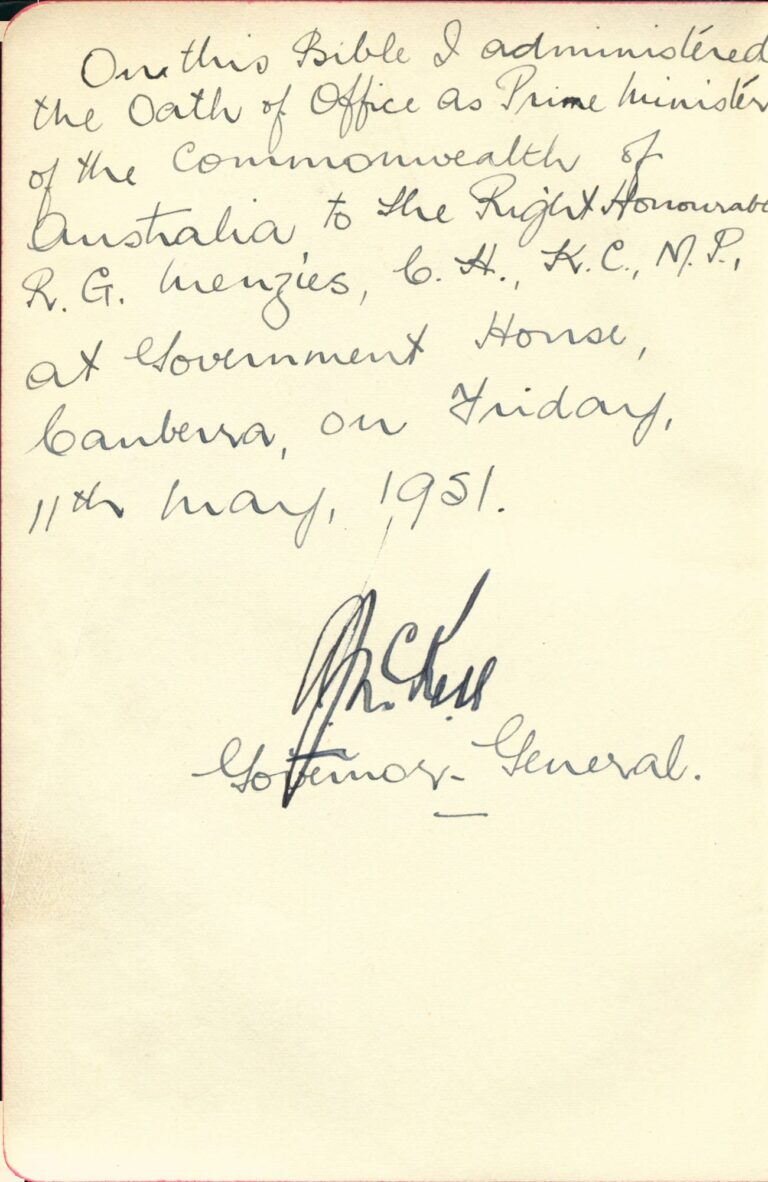 On this Bible I administered
the Oath of Office as Prime Minister
of the Commonwealth of
Australia to the Right Honourable
R. G. Menzies, C. H., K. C., M. P.,
at Government House,
Canberra, on Friday,
11th May, 1951.
W. J. McKell
Governor-General.